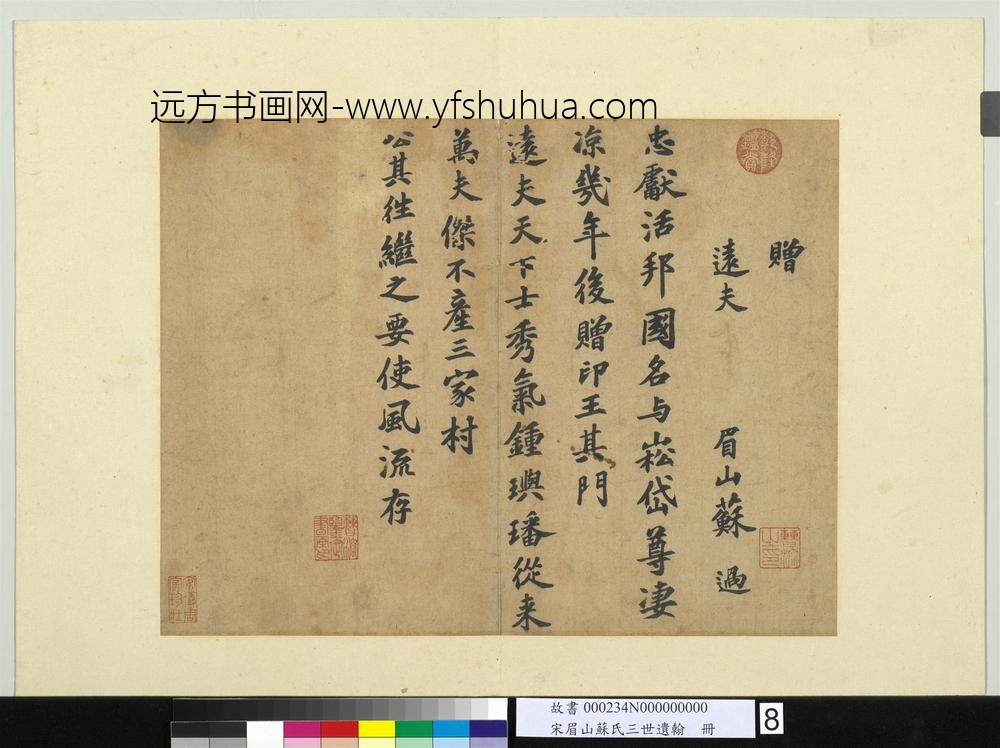 远方书画网-www.yfshuhua.com
贈
遠夫 眉山蘇過
忠獻活邦國名与崧岱尊凄
凉幾年後贈印王其門
遠夫天下士秀氣鍾璵璠從来
萬夫傑不産三家村
公其往繼之要使風流存
故書 000234N000000000
宋眉山蘇氏三世遺翰 冊
8